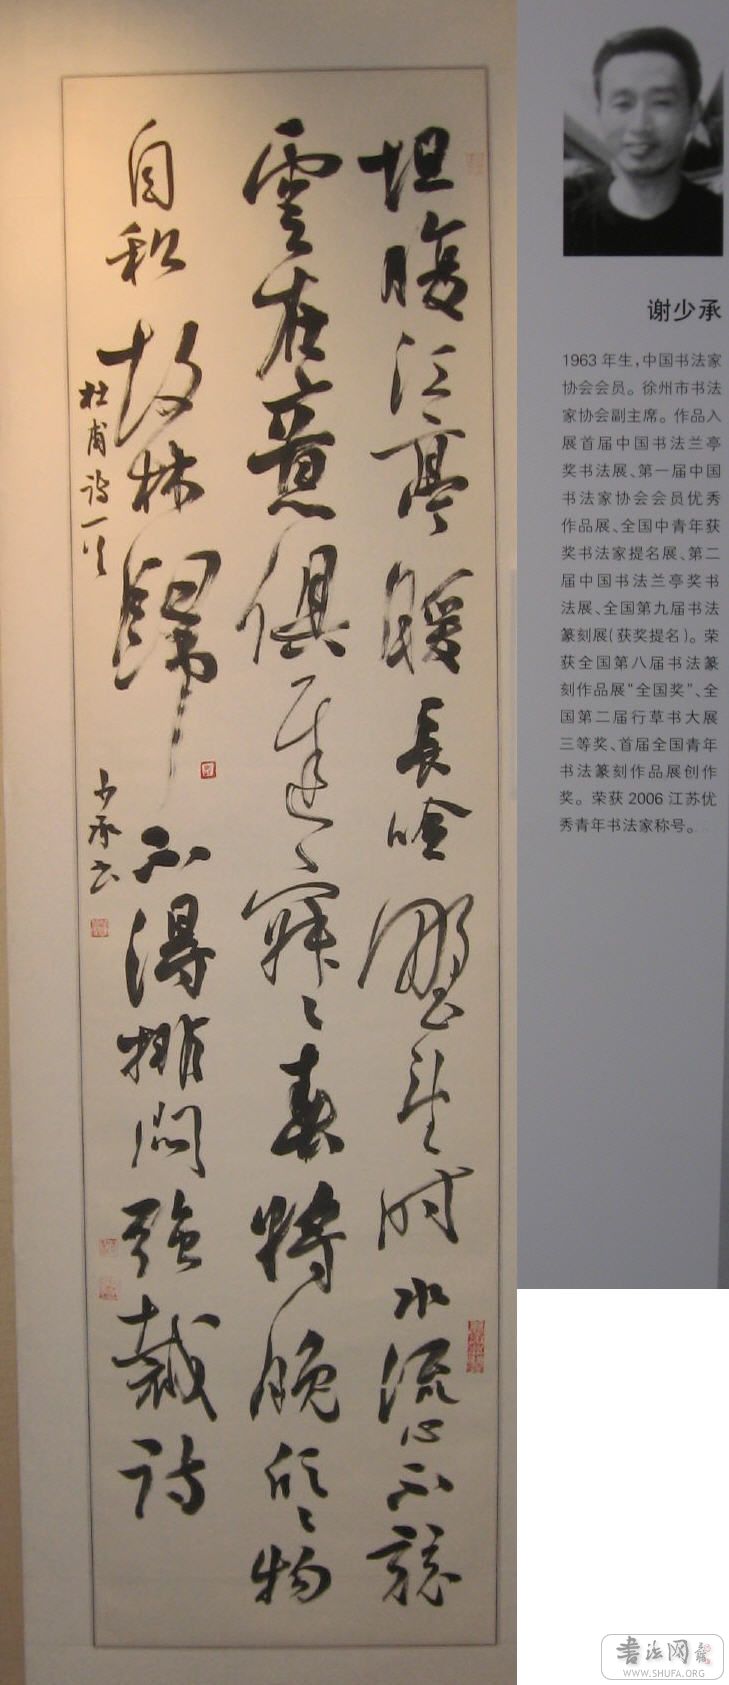 坦腹江亭暖長吟野望時水流心不競
雲在意俱遲寂〻春將晚欣〻物
自私故林歸不得排悶強裁詩
杜甫詩一首 少承書
谢少承
1963年生,中国书法家
协会会员。徐州市书法
家协会副主席。作品入
展首届中国书法兰亭
奖书法展、第一届中国
书法家协会会员优秀
作品展、全国中青年获
奖书法家提名展、第二
届中国书法兰亭奖书
法展、全国第九届书法
篆刻展(获奖提名)。荣
获全国第八届书法篆
刻作品展“全国奖”、全
国第二届行草书大展
三等奖、首届全国青年
书法篆刻作品展创作
奖。荣获2006江苏优
秀青年书法家称号。
書法网
WWW.SHUFA.ORG